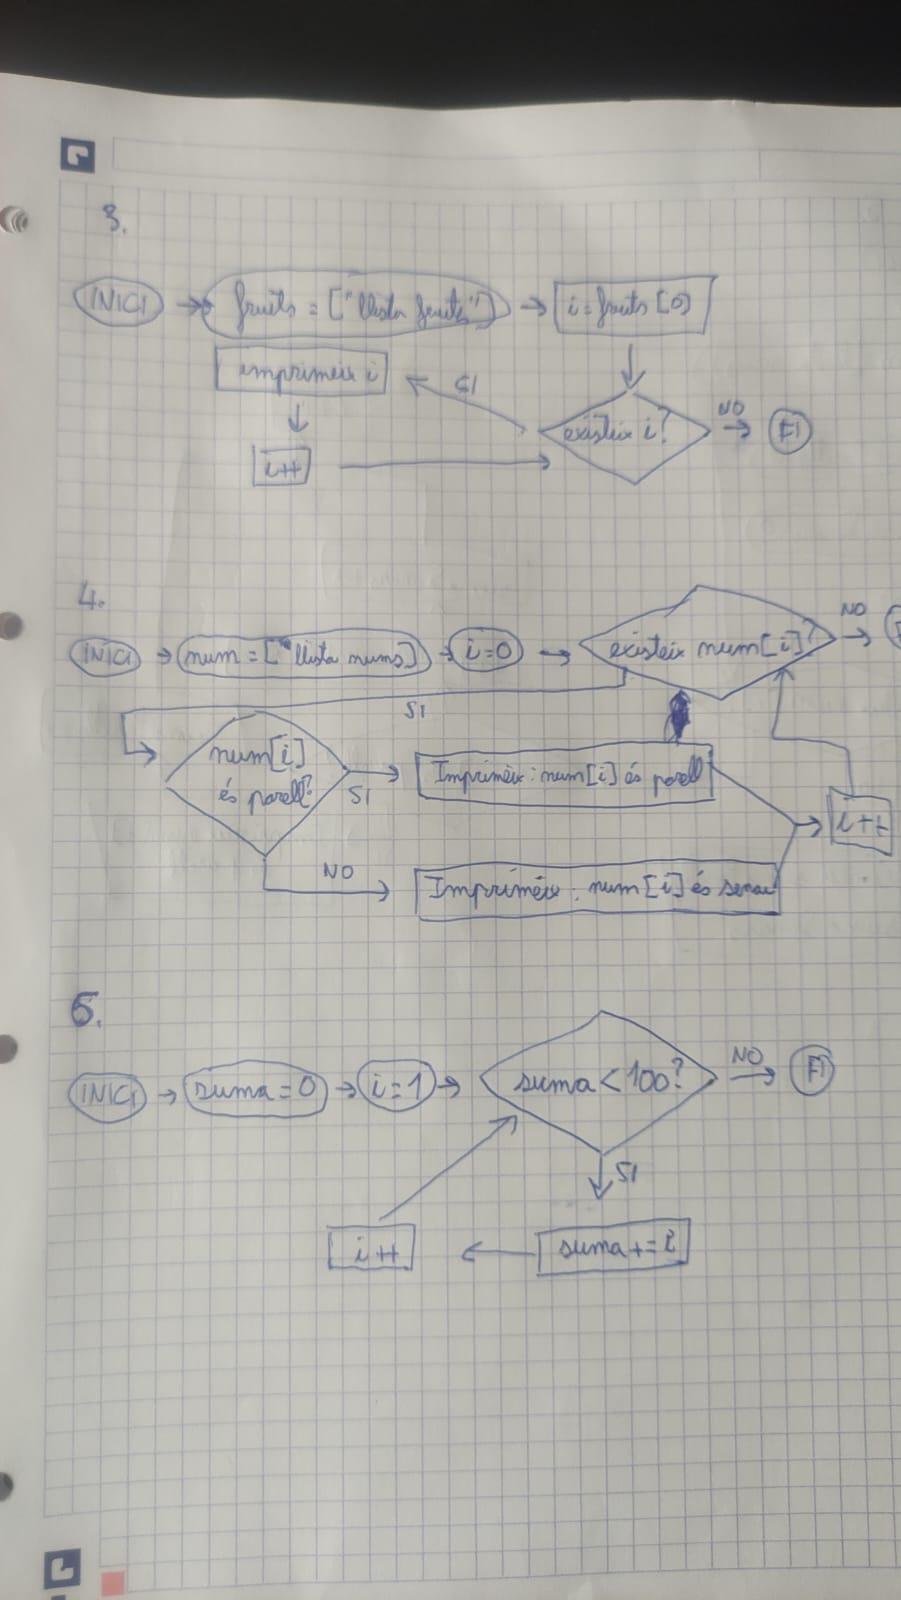 3.
INICI
fruits = ["llista fruits"]
i = fruits [0]
imprimeix i
SI
existeix i?
NO
FI
i++
4.
INICI
num = ["llista nums]
i=0
existeix num[i]?
NO
SI
num[i]
és parell?
SI
Imprimeix: num[i] és parell
i++
NO
Imprimeix: num[i] és senar
5.
INICI
suma=0
i=1
suma<100?
NO
FI
SI
i++
suma+=i